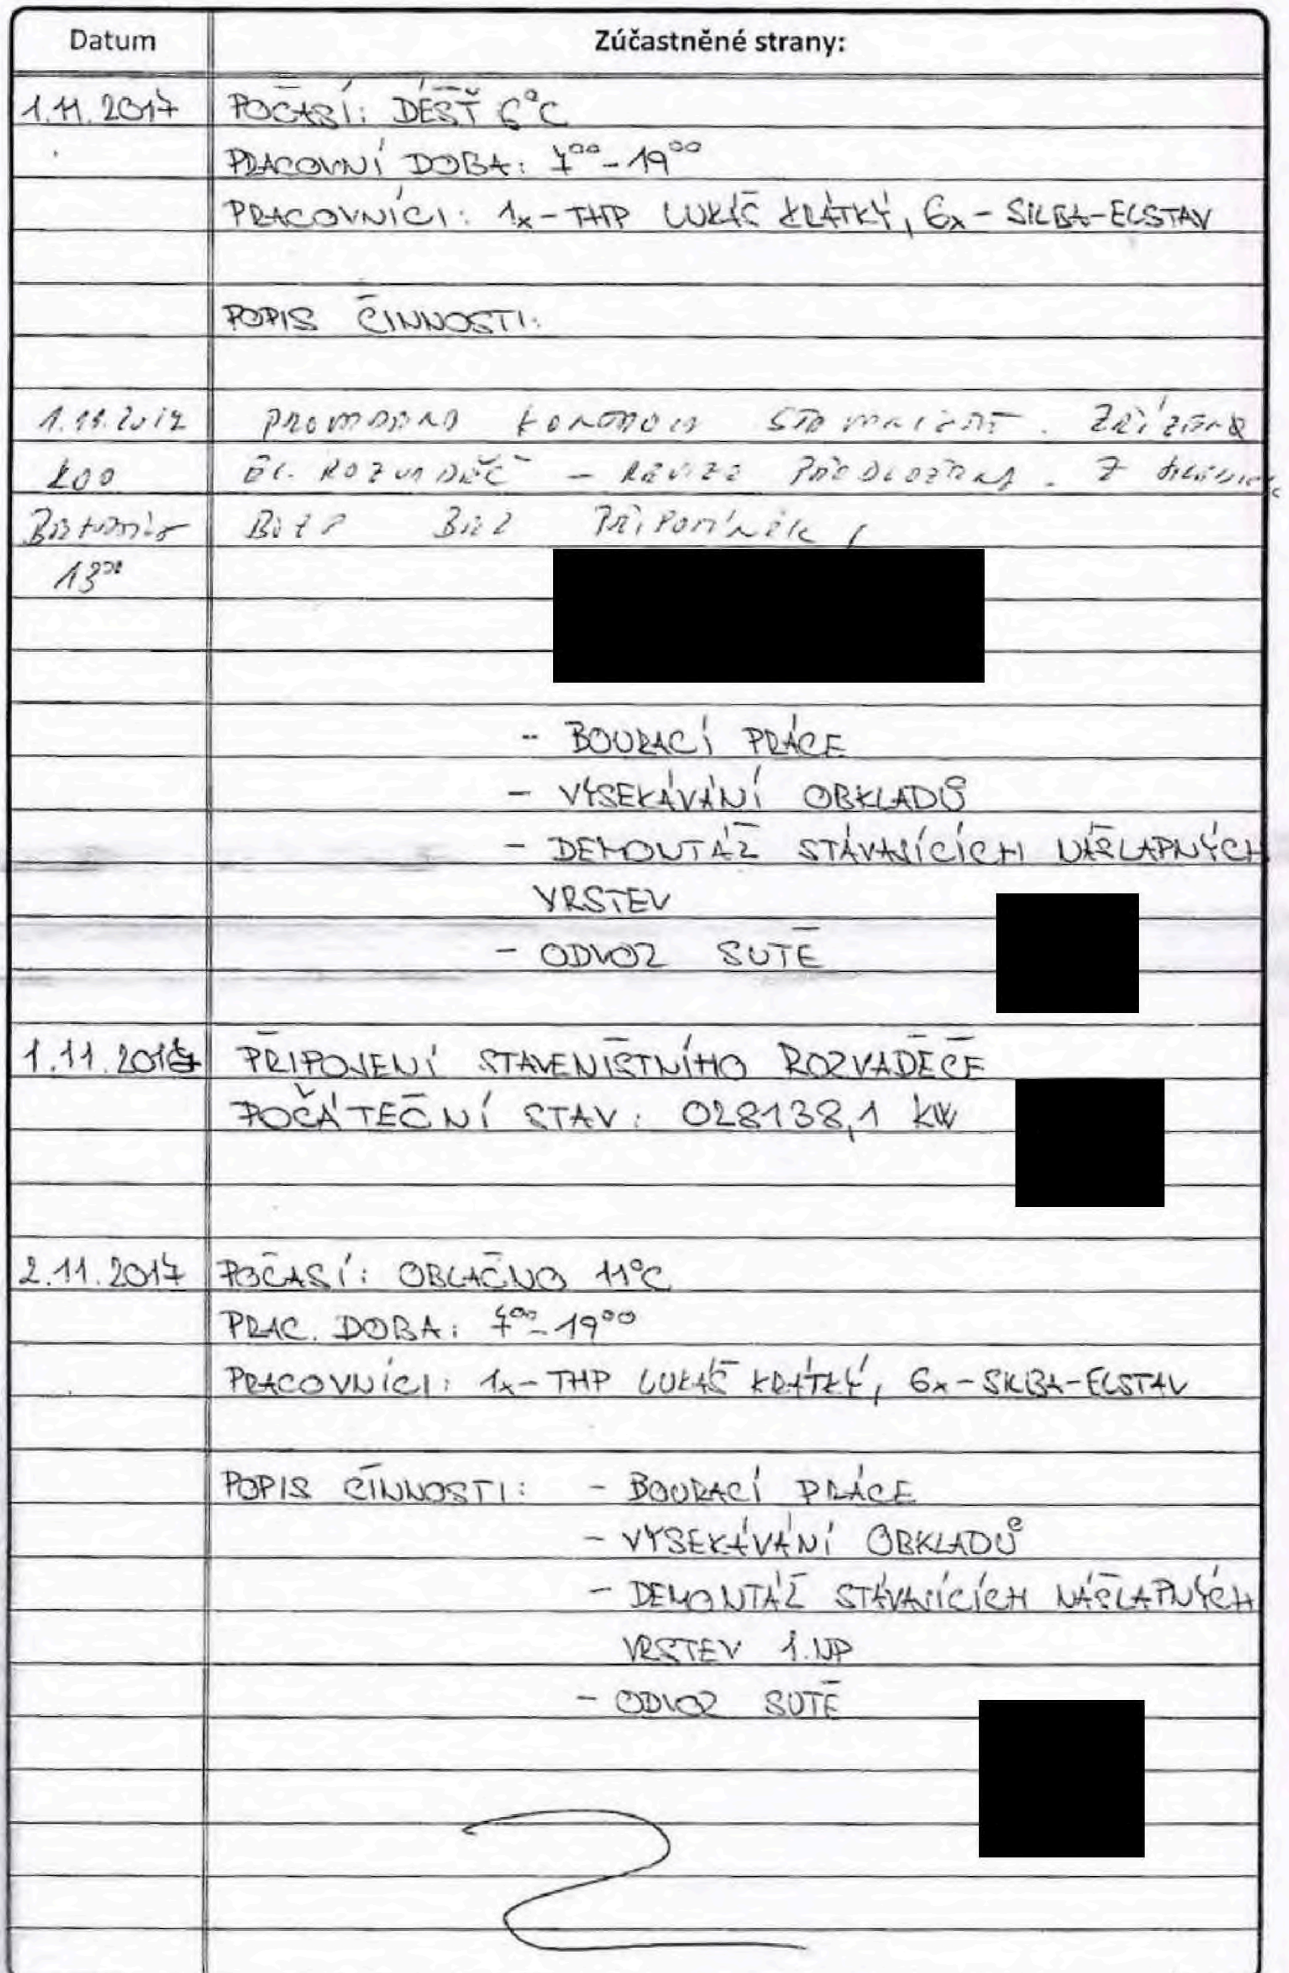 Datum Zúčastněné strany:
1.11.2017 POČASÍ: DÉŠŤ 6°C
PRACOVNÍ DOBA: 7⁰⁰-19⁰⁰
PRACOVNÍCI: 1x-THP LUKÁŠ KRÁTKÝ, 6x-SILBA-ELSTAV
POPIS ČINNOSTI:
1.11.2017 ZŘÍZENÝ
KOO EL. ROZVADĚČ - REVIZE PŘEDLOŽENA. Z
BOZP BEZ PŘIPOMÍNEK
13⁰⁰
- BOURACÍ PRÁCE
- VYSEKÁVÁNÍ OBKLADŮ
- DEMONTÁŽ STÁVAJÍCÍCH NÁŠLAPNÝCH
VRSTEV
- ODVOZ SUTĚ
1.11.2017 PŘIPOJENÍ STAVENIŠTNÍHO ROZVADĚČE
POČÁTEČNÍ STAV: 028138,1 kW
2.11.2017 POČASÍ: OBLAČNO 11°C
PRAC. DOBA: 7⁰⁰-19⁰⁰
PRACOVNÍCI: 1x-THP LUKÁŠ KRÁTKÝ, 6x-SILBA-ELSTAV
POPIS ČINNOSTI: - BOURACÍ PRÁCE
- VYSEKÁVÁNÍ OBKLADŮ
- DEMONTÁŽ STÁVAJÍCÍCH NÁŠLAPNÝCH
VRSTEV 1.NP
- ODVOZ SUTĚ